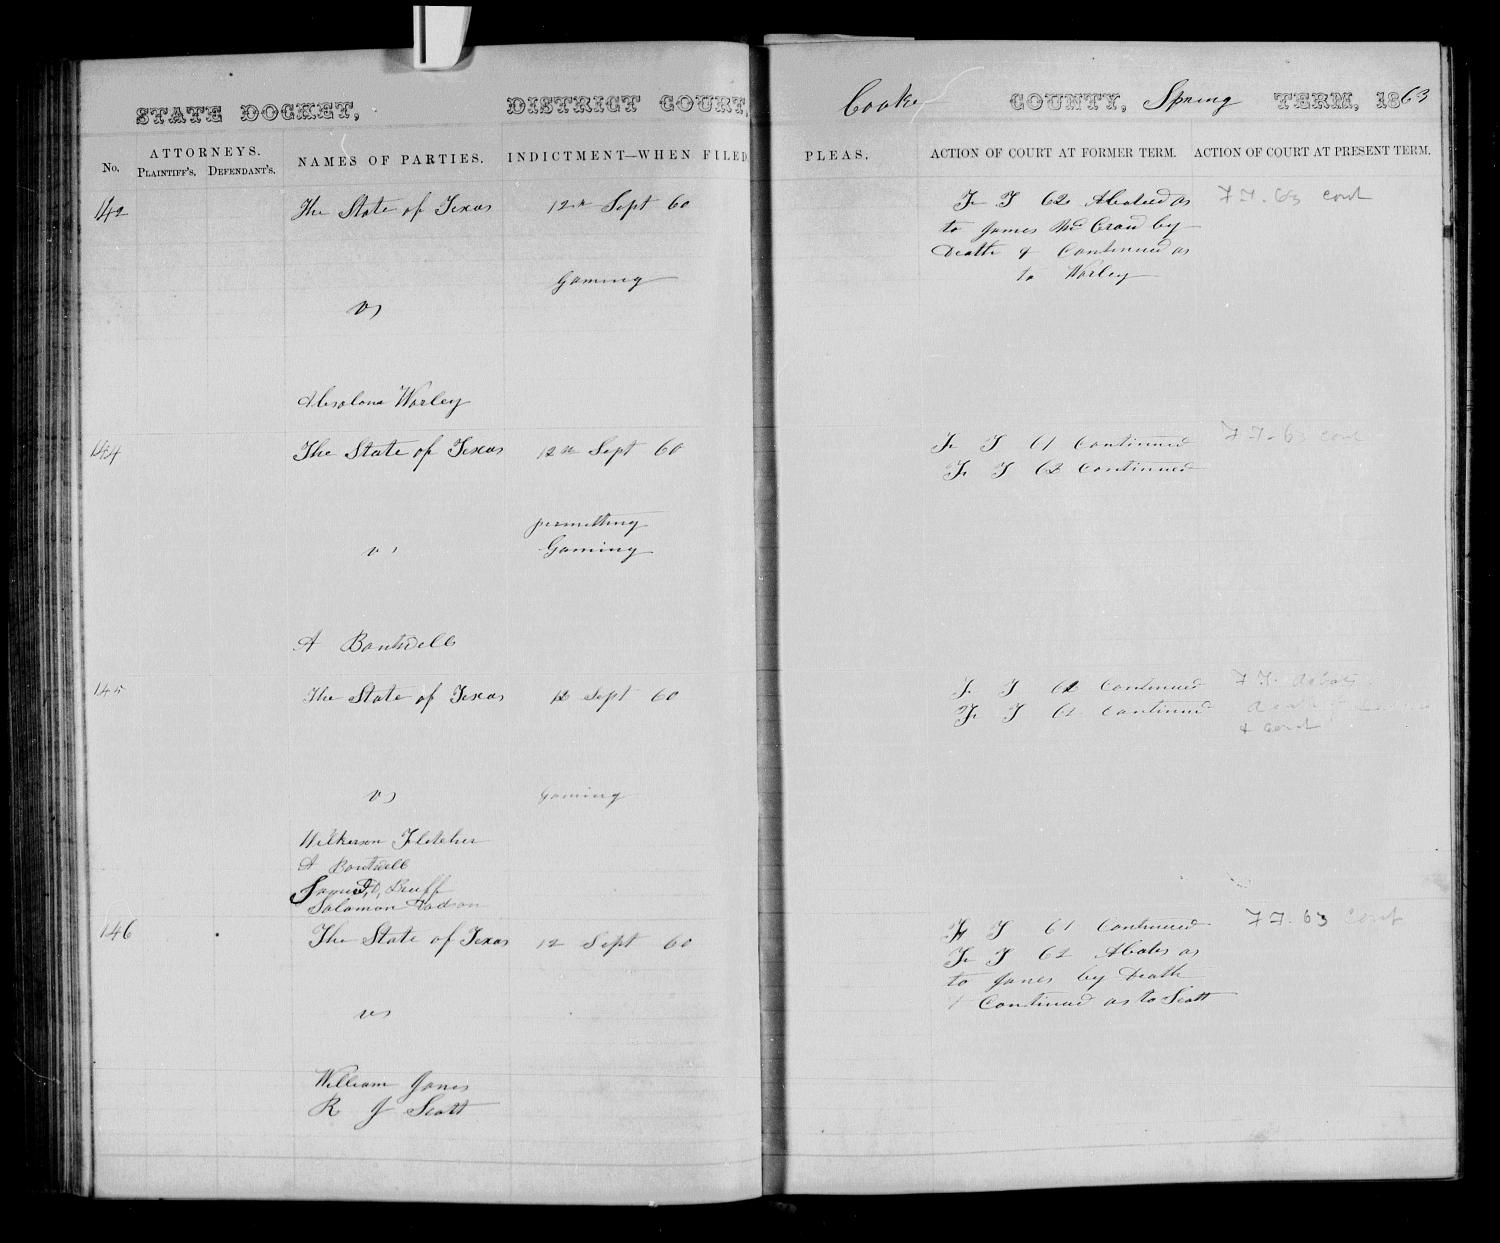 STATE DOCKET, DISTRICT COURT, Cooke COUNTY, Spring TERM, 1863
No. ATTORNEYS. NAMES OF PARTIES. INDICTMENT—WHEN FILED. PLEAS. ACTION OF COURT AT FORMER TERM. ACTION OF COURT AT PRESENT TERM.
PLAINTIFF'S. DEFENDANT'S.
142 The State of Texas 12th Sept 60 F T 62 Abated as F T. 63 cont
to James McCraw by
Death & Continued as
Gaming to Worley
vs
Absolona Worley
144 The State of Texas 12th Sept 60 F T 61 Continued F T. 63 cont
F T 62 Continued
permitting
vs Gaming
A Boutwell
145 The State of Texas 12 Sept 60 F T Continued F T.
F T 62 Continued
& cont
vs Gaming
Wilkerson Fletcher
A Boutwell
Samuel D, Bruff
Solomon Hodson
146 The State of Texas 12 Sept 60 F T 61 Continued F T. 63 cont
F T 62 Abates as
to Jones by Death
& Continued as to Scott
vs
William Jones
R J Scott